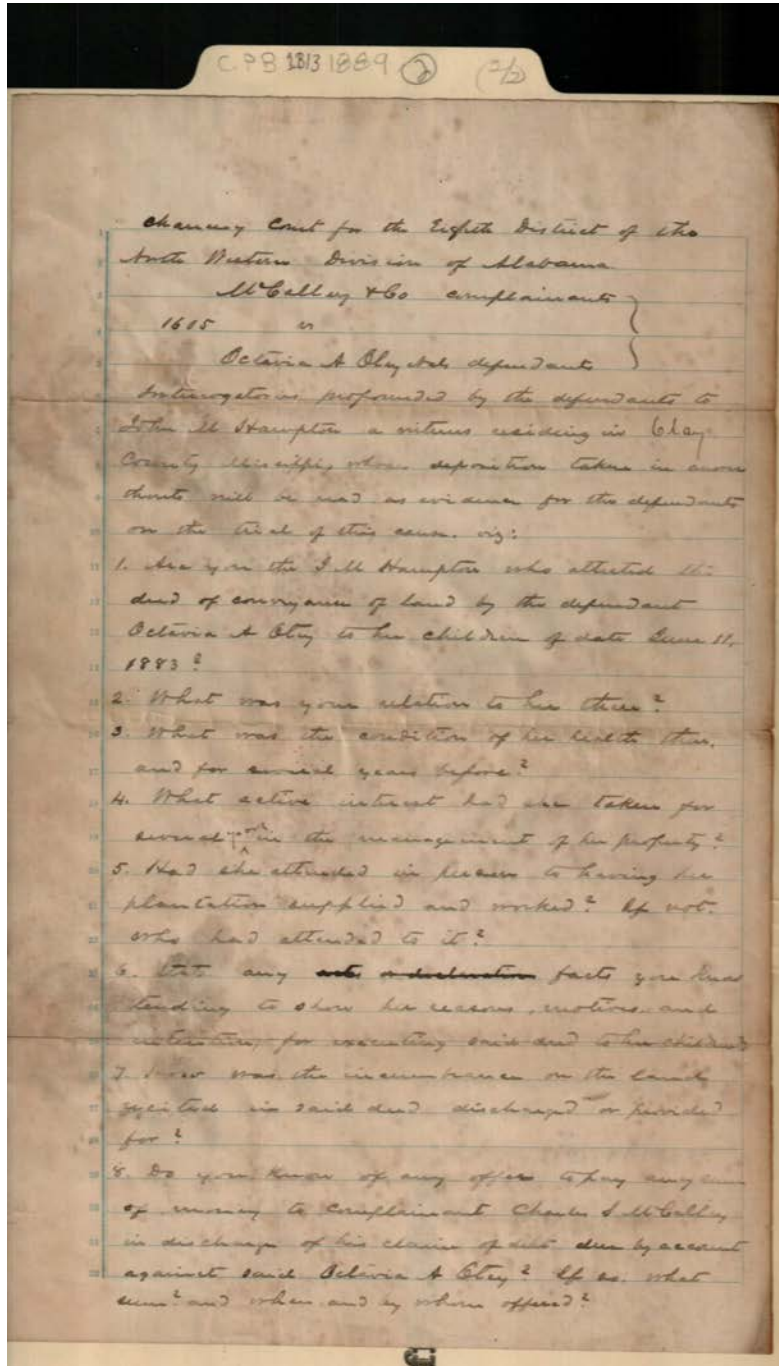 C.P.B 1813 1889 2 (2/2)
Chancery Court for the Eighth District of the
North Western Division of Alabama
McCalley & Co complainants
1615 vs
Octavia A Otey et als defendants
Interrogatories propounded by the defendants to
John M Hampton a witness residing in Clay
County Mississippi, whose deposition taken in answer
thereto will be read as evidence for the defendants
on the trial of this cause. viz:
1. Are you the J M Hampton who attested the
deed of conveyance of land by the defendant
Octavia A Otey to her children of date June 11,
1883?
2. What was your relation to her then?
3. What was the condition of her health then,
and for several years before?
4. What active interest had she taken for
several years in the management of her property?
5. Had she attended in person to having her
plantation supplied and worked? If not.
who had attended to it?
6. State any acts or declarations facts you know
tending to show her reasons, motives and
intention, for executing said deed to her children
7. How was the incumbrance on the land
recited in said deed discharged or provided
for?
8. Do you know of any offer to pay any sum
of money to complainant Charles S McCalley
in discharge of his claim of debt due by account
against said Octavia A Otey? If so. what
sum? and when and by whom offered?